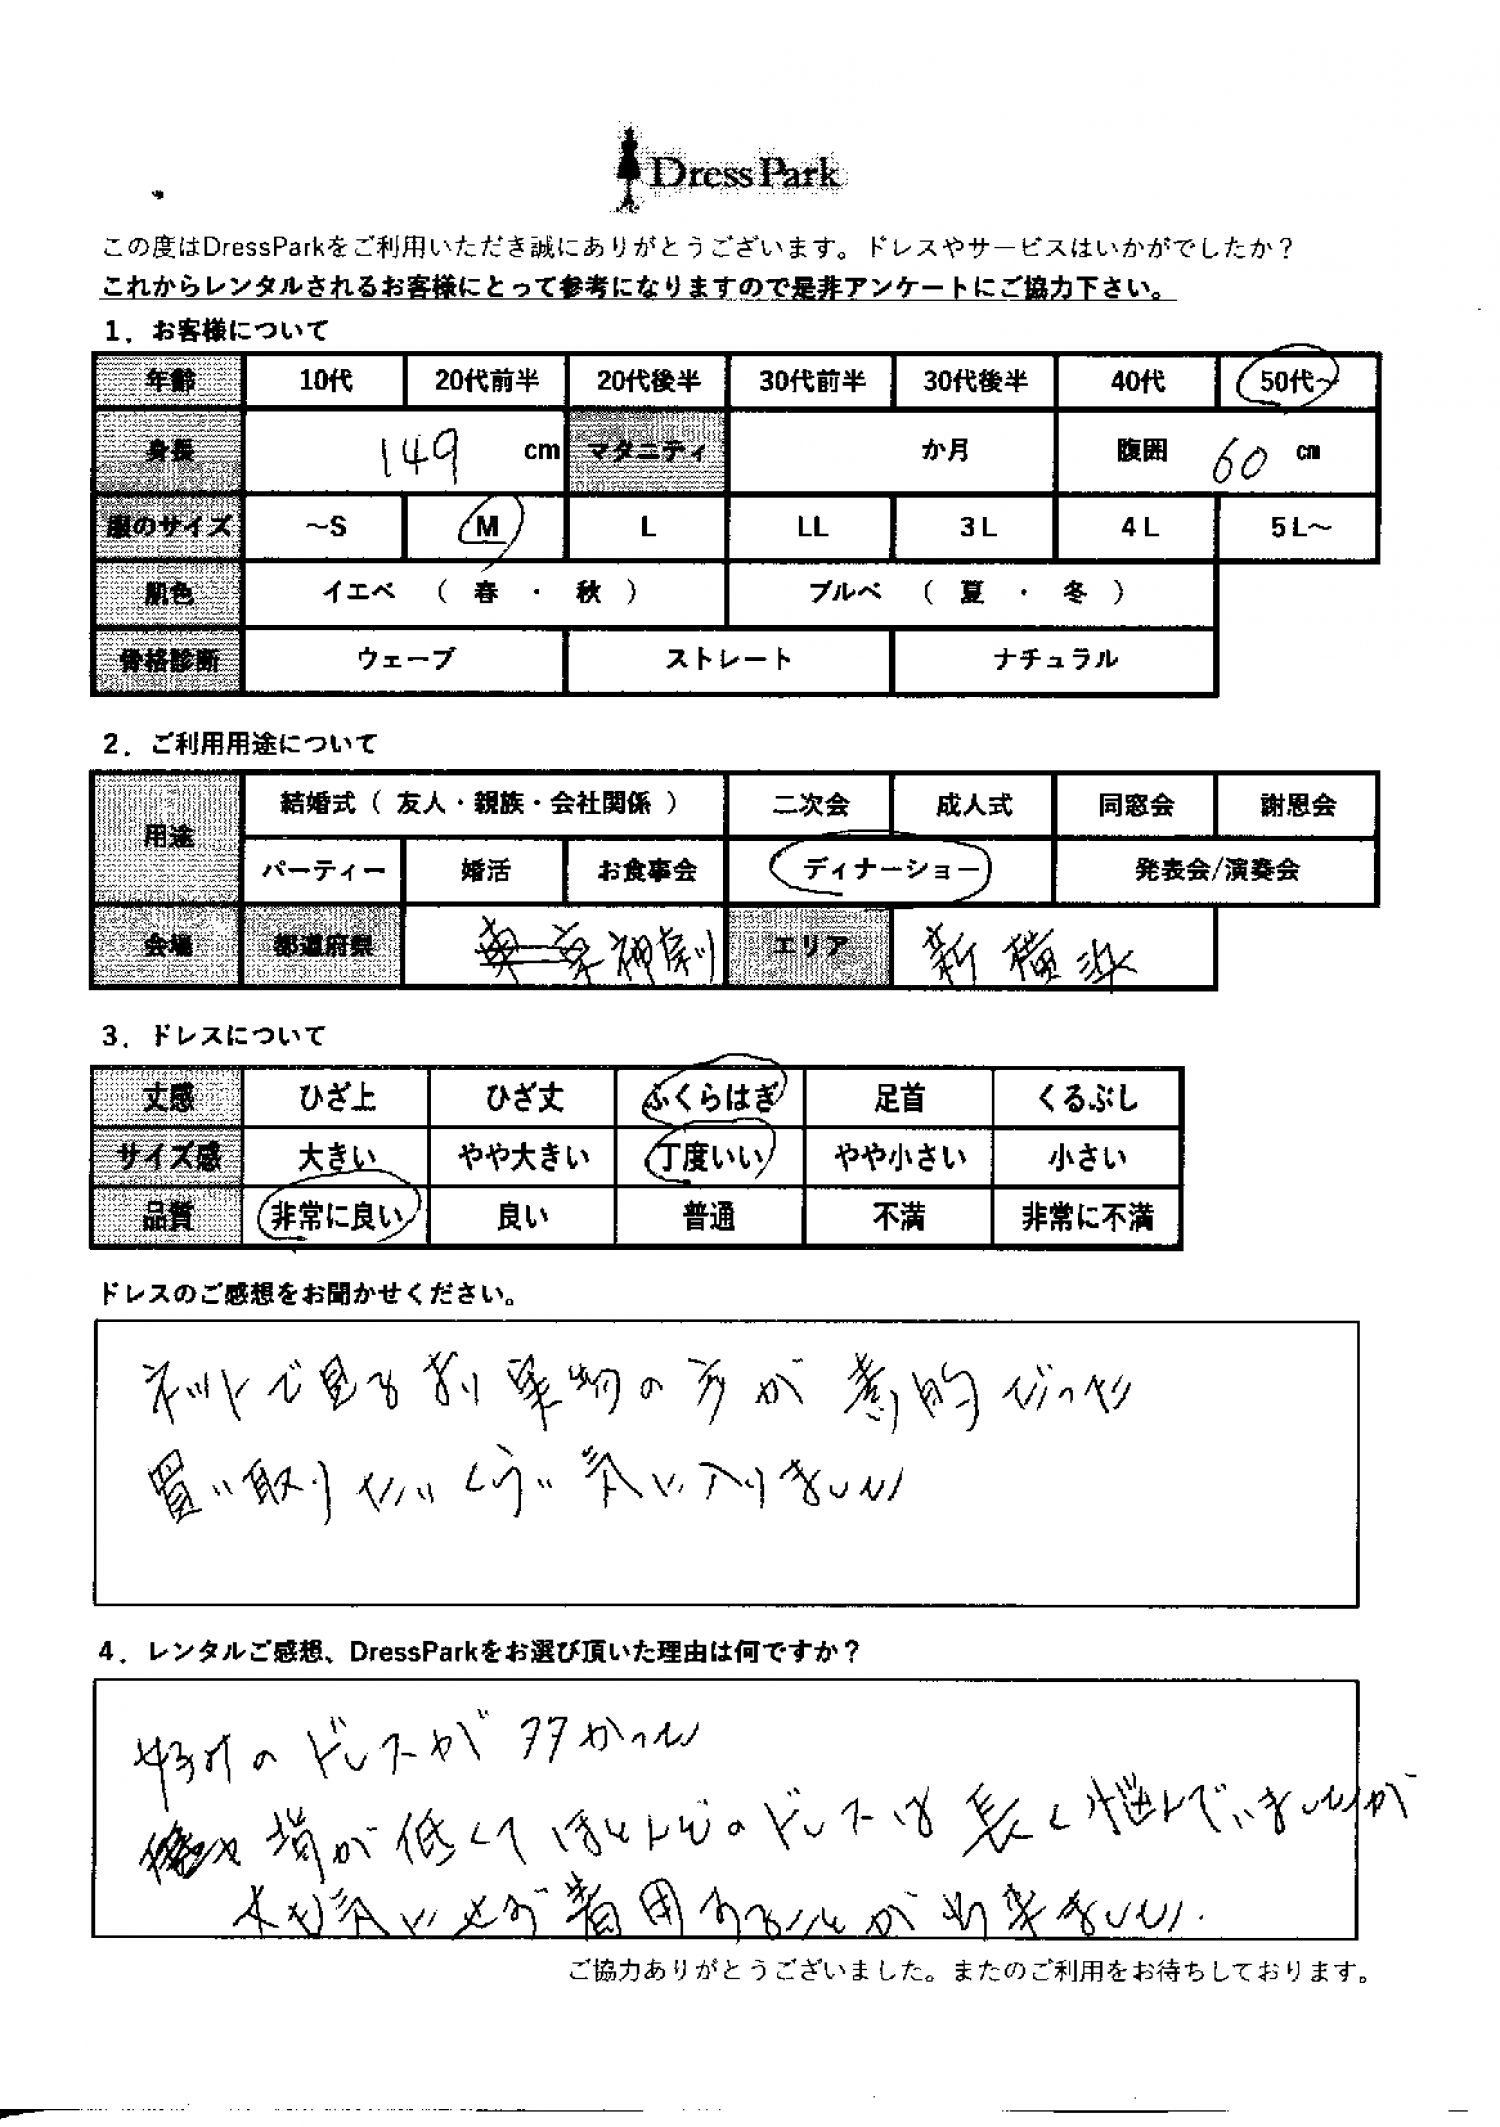 DressPark
この度はDressParkをご利用いただき誠にありがとうございます。ドレスやサービスはいかがでしたか？
これからレンタルされるお客様にとって参考になりますので是非アンケートにご協力下さい。
1．お客様について
年齢 10代 20代前半 20代後半 30代前半 30代後半 40代 50代～
身長 149 cm マタニティ か月 腹囲 60 cm
服のサイズ ～S M L LL 3L 4L 5L～
肌色 イエベ （ 春 ・ 秋 ） ブルベ （ 夏 ・ 冬 ）
骨格診断 ウェーブ ストレート ナチュラル
2．ご利用用途について
用途 結婚式（ 友人・親族・会社関係 ） 二次会 成人式 同窓会 謝恩会
パーティー 婚活 お食事会 ディナーショー 発表会/演奏会
会場 都道府県 東京 神奈川 エリア 新横浜
3．ドレスについて
丈感 ひざ上 ひざ丈 ふくらはぎ 足首 くるぶし
サイズ感 大きい やや大きい 丁度いい やや小さい 小さい
品質 非常に良い 良い 普通 不満 非常に不満
ドレスのご感想をお聞かせください。
ネットで見るより実物の方が素的だった
買い取りたいくらい気に入りました
4．レンタルご感想、DressParkをお選び頂いた理由は何ですか？
好みのドレスが多かった
背が低くてほとんどのドレスは長く悩んでいましたが
丈も気にせず着用することが出来ました.
ご協力ありがとうございました。またのご利用をお待ちしております。